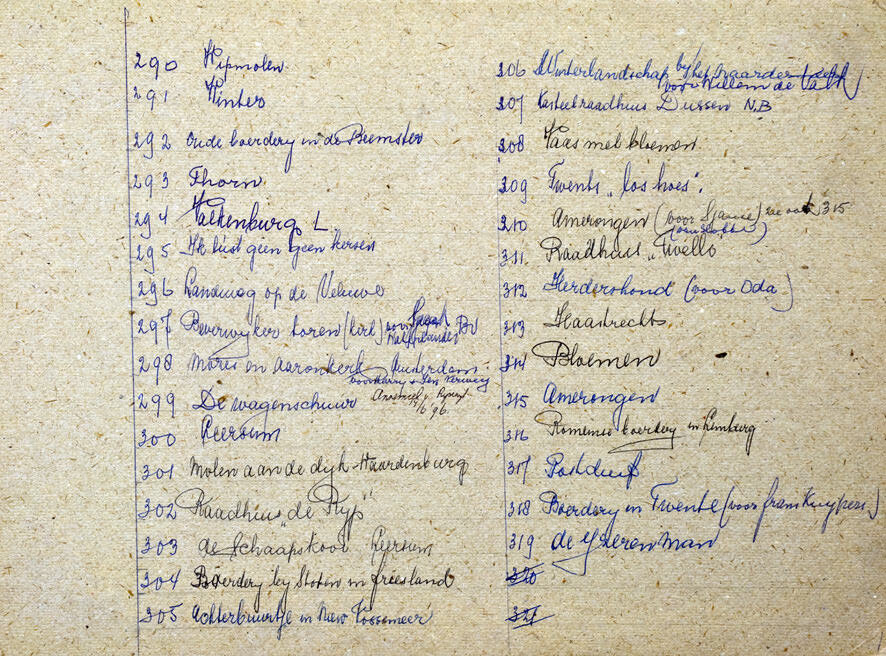 290 Wipmolen
291 Winter
292 oude boerdery in de Beemster
293 Thorn
294 Valkenburg L.
295 Ik lust geen geen kersen
296 Landweg op de Veluwe
297 Beverwyker toren (kerk) voor
298 Mozes en Aaronkerk Amsterdam
voor Harry + Gen Verweij
299 De wagenschuur
6 96
300 Leersum
301 Molen aan de dijk Waardenburg
302 Raadhuis "de Ryp"
303 de Schaapskooi Leersum
304 Boerdery by Sloten in friesland
305 Achterbuurtje in Nieuw Vossemeer
306 Winterlandschap by het
voor Willem de Valk
307 Kasteelraadhuis Dussen N.B
308 Vaas met bloemen
309 Twents „los hoes".
310 Amerongen (voor zie ook 315
311. Raadhuis „Twello"
312 Herdershond (voor Oda)
313 Haastrecht
314 Bloemen
315 Amerongen
316 Romeinse boerdery in Limburg
317 Postduif
318 Boerdery in Twente (voor frans Kuypers)
319 de Yzeren Man
320
321